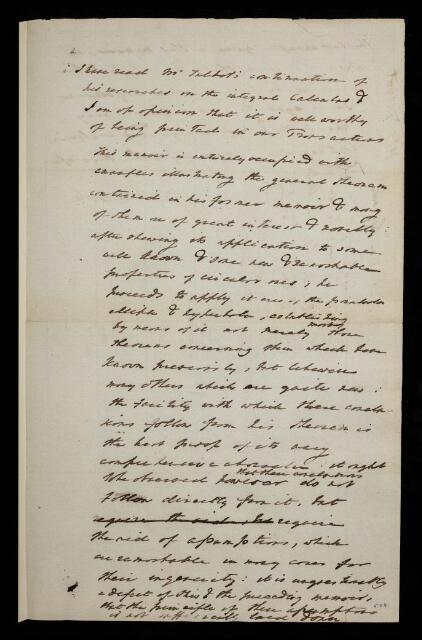 I have read Mr Talbot's continuation of
his researches on the integral Calculus &
I am of opinion that it is well worthy
of being printed in our Transactions
This memoir is entirely occupied with
examples illustrating the general theorem
contained in his former memoir & many
of them are of great interest & novelty:
after shewing its application to some
well known & some new & remarkable
properties of circular arcs, he
proceeds to apply it to the parabola
ellipse & hyperbola, establishing
by means of it not merely most those
theorems concerning them which have
known previously, but likewise
many others which are quite new:
the facility with which these conclu
sions follow from his theorem is
the best proof of its very
comprehensive character: it ought
to be observed however that these conclusions do not
follow directly from it, but
require the aid but require
the aid of assumptions, which
are remarkable in many cases for
their ingenuity: it is unquestionably
a defect of this & the preceding memoir,
that the principle of these assumptions
is not laid down